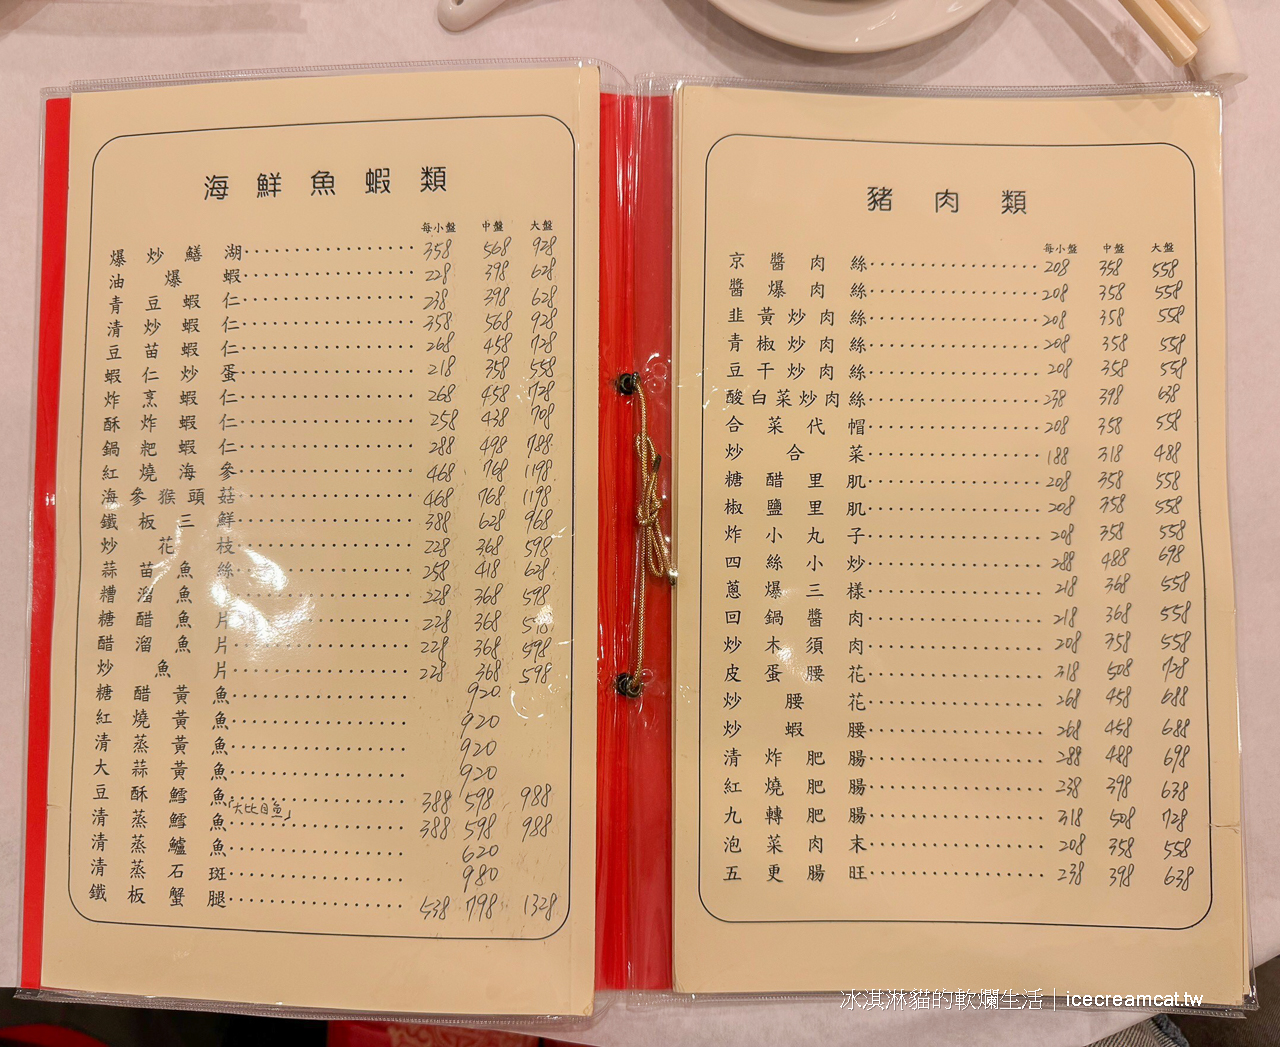 海鮮魚蝦類
每小盤 中盤 大盤
爆炒鱔湖 358 568 928
油爆蝦 228 398 628
青豆蝦仁 238 398 628
清炒蝦仁 358 568 928
豆苗蝦仁 268 458 728
蝦仁炒蛋 218 358 558
炸烹蝦仁 268 458 728
酥炸蝦仁 258 438 708
鍋粑蝦仁 288 498 788
紅燒海參 468 768 1198
海參猴頭菇 468 768 1198
鐵板三鮮 388 628 968
炒花枝 228 368 598
蒜苗魚絲 258 418 628
糟溜魚 228 368 598
糖醋魚片 228 368 598
醋溜魚片 228 368 598
炒魚片 228 368 598
糖醋黃魚 920
紅燒黃魚 920
清蒸黃魚 920
大蒜黃魚 920
豆酥鱈魚 388 598 988
「大比目魚」
清蒸鱈魚 388 598 988
清蒸鱸魚 620
清蒸石斑 980
鐵板蟹腿 538 798 1328
豬肉類
每小盤 中盤 大盤
京醬肉絲 208 358 558
醬爆肉絲 208 358 558
韭黃炒肉絲 208 358 558
青椒炒肉絲 208 358 558
豆干炒肉絲 208 358 558
酸白菜炒肉絲 238 398 638
合菜代帽 208 358 558
炒合菜 188 318 488
糖醋里肌 208 358 558
椒鹽里肌 208 358 558
炸小丸子 208 358 558
四絲小炒 288 488 698
蔥爆三樣 218 368 558
回鍋醬肉 218 368 558
炒木須肉 208 358 558
皮蛋腰花 318 508 728
炒腰花 268 458 688
炒蝦腰 268 458 688
清炸肥腸 288 488 698
紅燒肥腸 238 398 638
九轉肥腸 318 508 728
泡菜肉末 208 358 558
五更腸旺 238 398 638
冰淇淋貓的軟爛生活｜icecreamcat.tw